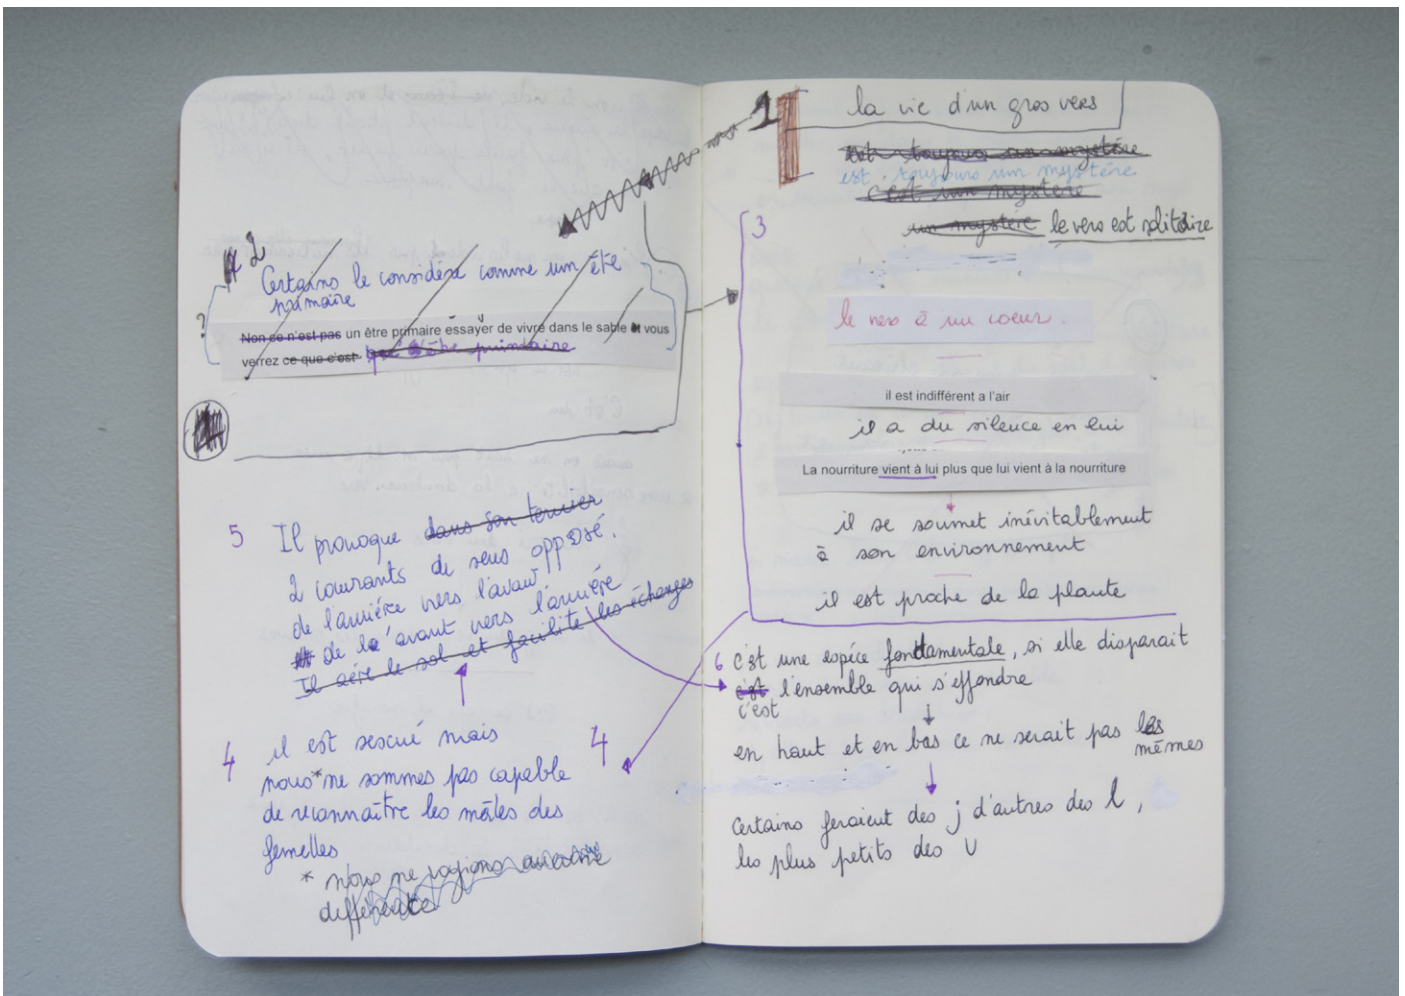 2
Certains le considére comme um être
primaire
?
Non ce n'est pas un être primaire essayer de vivre dans le sable et vous
verrez ce que c'est qu' être primaire
5
Il provoque dans son terrier
2 courants de sens opposé.
de l'arriére vers l'avant.
de l'avant vers l'arriére
Il aére le sol et facilite les échanges
4
il est sexué mais
nous*ne sommes pas capable
de reconnaître les mâles des
femelles
4
* nous ne voyons aucune
différence
1
la vie d'un gros vers
est toujours un mystére
est toujours um mystére
c'est un mystere
un mystére le vers est solitaire
3
le vers à un coeur.
il est indifférent a l'air
il a du silence en lui
La nourriture vient à lui plus que lui vient à la nourriture
il se soumet inévitablement
à son environnement
il est proche de la plante
6 c'est une espéce fondamentale, si elle disparait
c'est l'ensemble qui s'effondre
c'est
en haut et en bas ce ne serait pas les
mêmes
Certains feraient des j d'autres des l,
les plus petits des U